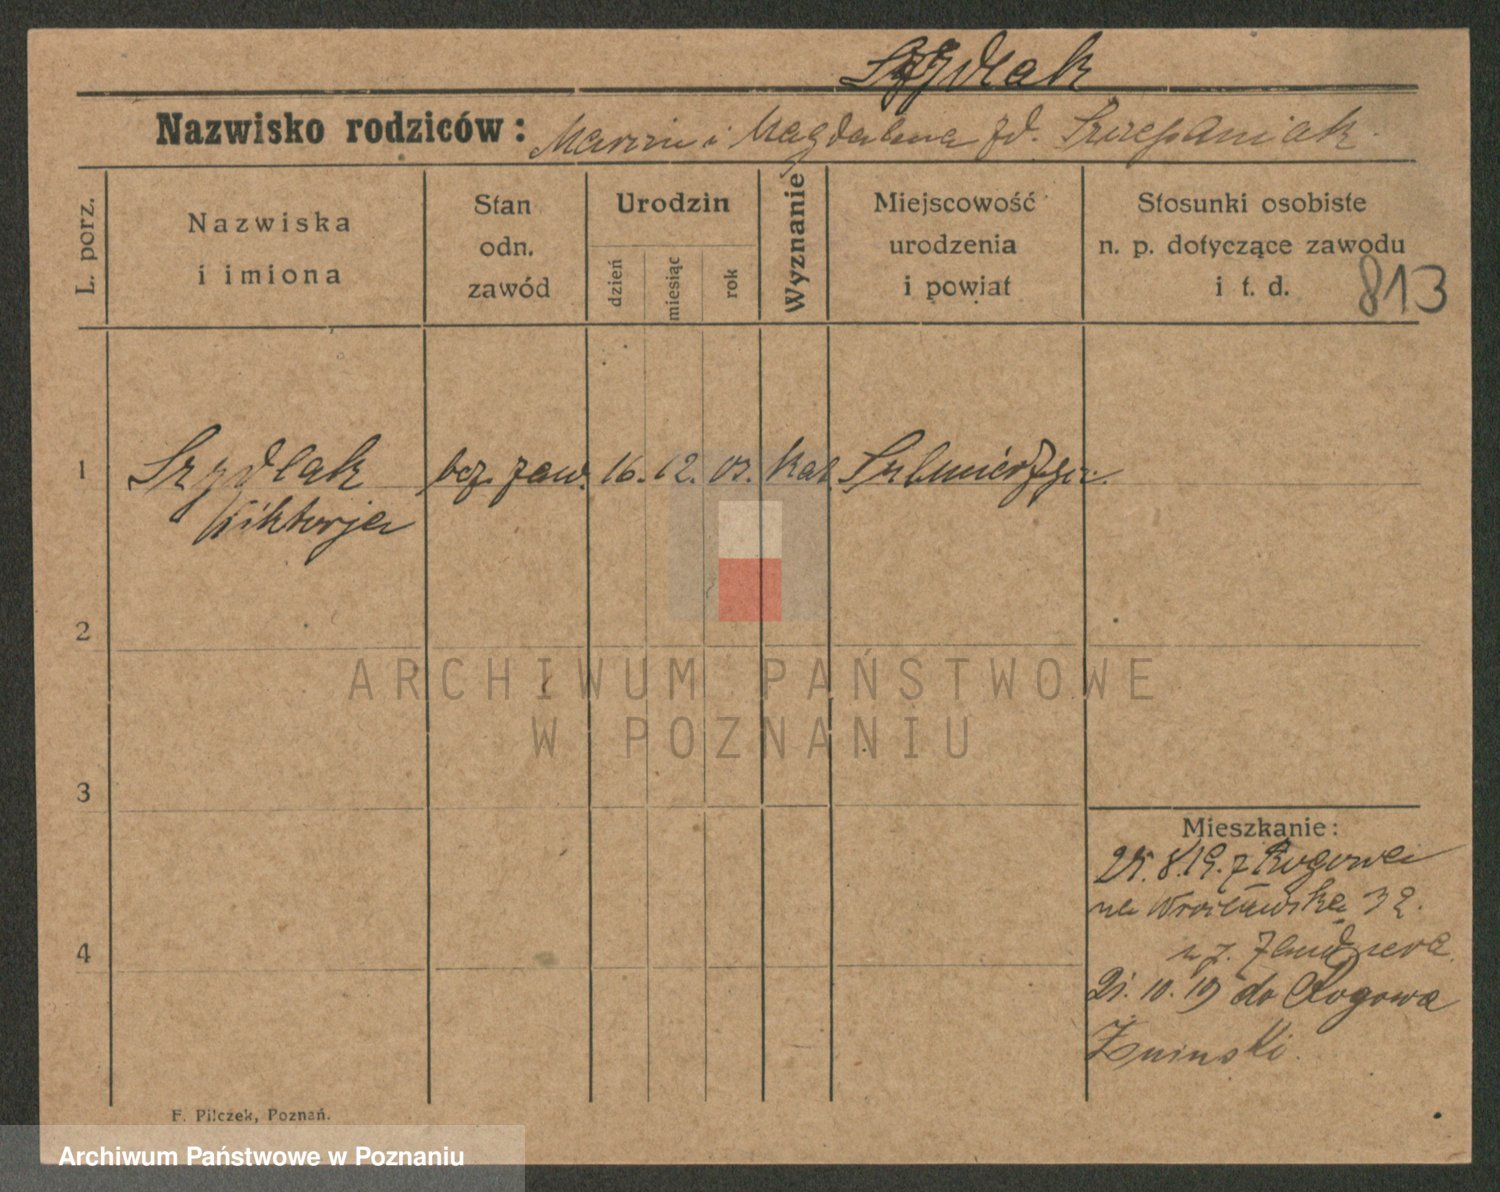 Szydlak
Nazwisko rodziców: Marcin i Magdalena zd. Szczepaniak.
L. porz.
Nazwiska
i imiona
Stan
odn.
zawód
Urodzin
dzień
miesiąc
rok
Wyznanie
Miejscowość
urodzenia
i powiat
Stosunki osobiste
n. p. dotyczące zawodu
i t. d.
813
1
Szydlak
Wiktorja
bez zaw. 16. 12. 03. Kat. Sulmierzyce.
2
ARCHIWUM PAŃSTWOWE
W POZNANIU
3
Mieszkanie:
25. 8. 19. z Rogowa
na Wrocławska 32.
4
21. 10. 19 do Rogowa
Żniński.
F. Pilczek, Poznań.
Archiwum Państwowe w Poznaniu